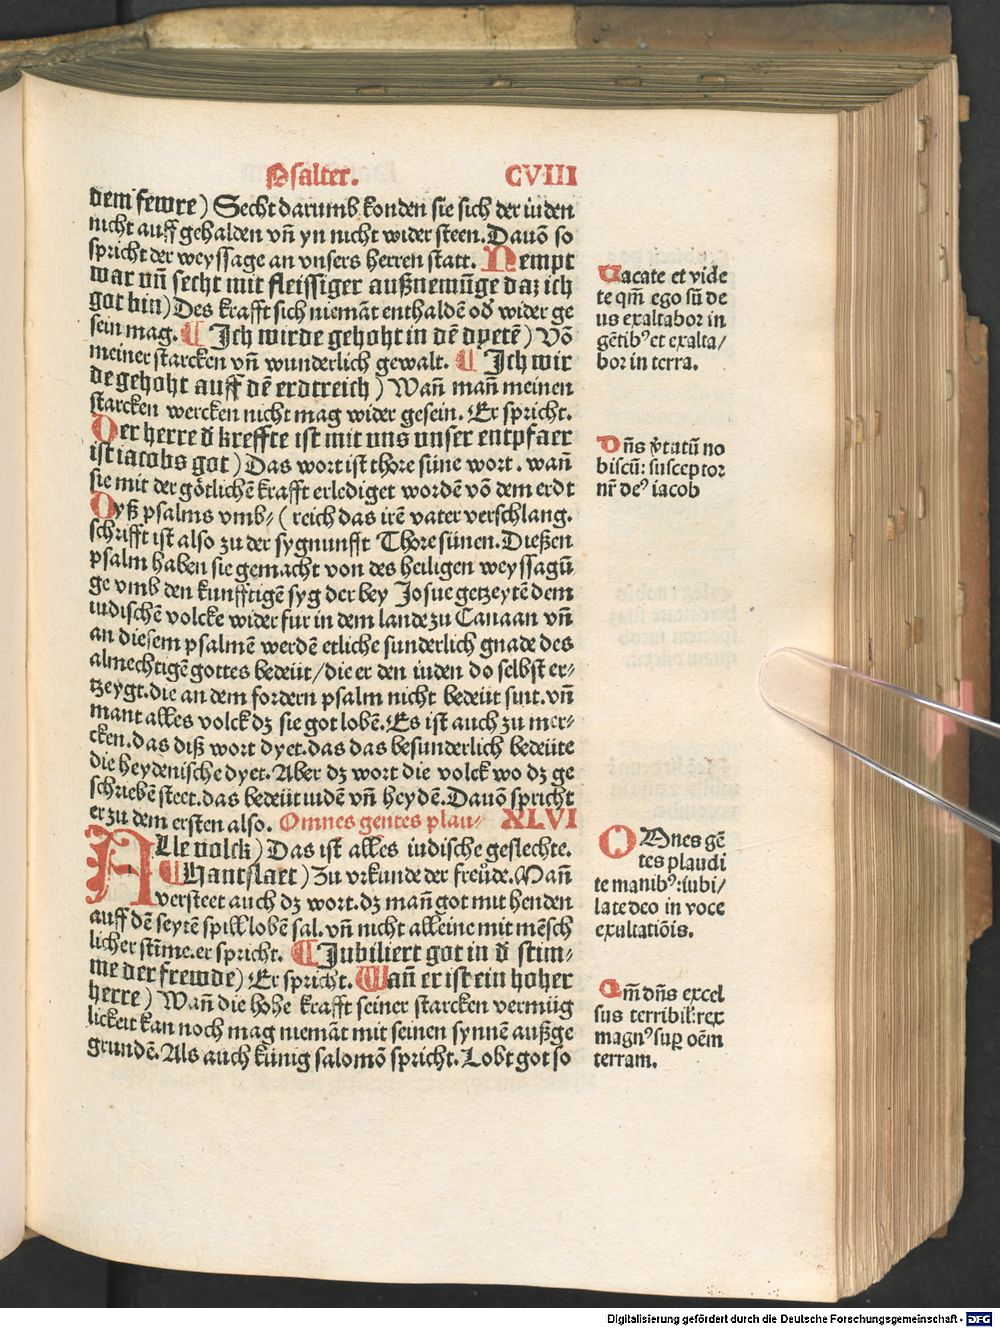 Psalter. CVIII
dem fewre) Secht darumb konden sie sich der iuden
nicht auff gehalden vñ yn nicht wider steen. Dauõ so
spricht der weyssage an vnsers herren statt. Nempt
war vñ secht mit fleissiger außnemũge daz ich
got bin) Des krafft sich niemãt enthaldẽ oď wider ge
sein mag. ¶ Ich wirde gehoht in dẽ dyetẽ) Võ
meiner starcken vñ wunderlich gewalt. ¶ Ich wir
de gehoht auff dẽ erdtreich) Wañ mañ meinen
starcken wercken nicht mag wider gesein. Er spricht.
Der herre ď kreffte ist mit vns vnser entpfaer
ist iacobs got) Das wort ist thore süne wort. wañ
sie mit der götlichẽ krafft erlediget wordẽ võ dem erdt
Dyß psalms vmb⸗ ( reich das irẽ vater verschlang.
schrifft ist also zu der sygnunfft Thore sünen. Dießen
psalm haben sie gemacht von des heiligen weyssagũ
ge vmb den kunfftigẽ syg der bey Josue getzeytẽ dem
iudischẽ volcke wider fur in dem lande zu Canaan vñ
an diesem psalmẽ werdẽ etliche sunderlich gnade des
almechtigẽ gottes bedeüt/die er den iuden do selbst er⸗
tzeygt. die an dem fordern psalm nicht bedeüt sint. vñ
mant alles volck dz sie got lobẽ. Es ist auch zu mer⸗
cken. das diß wort dyet. das das besunderlich bedeüte
die heydenische dyet. Aber dz wort die volck wo dz ge
schriebẽ steet. das bedeüt iudẽ vñ heydẽ. Dauõ spricht
er zu dem ersten also. Omnes gentes plau⸗ XLVI
Alle volck) Das ist alles iudische geslechte.
¶ Hantslaet) Zu vrkunde der freüde. Mañ
versteet auch dz wort. dz mañ got mit henden
auff dẽ seytẽ spill lobẽ sal. vñ nicht alleine mit mẽsch
licher stĩme. er spricht. ¶ Jubiliert got in ď stim⸗
me der frewde) Er spricht. Wañ er ist ein hoher
herre) Wañ die hohe krafft seiner starcken vermüg
lickeit kan noch mag niemãt mit seinen synnẽ außge
grundẽ. Als auch künig salomõ spricht. Lobt got so
Vacate et vide
te qm̃ ego sũ de
us exaltabor in
gẽtibꝰ et exalta/
bor in terra.
Dñs v̾tutũ no
biscũ: susceptor
nr̃ deꝰ iacob
OMnes gẽ
tes plaudi
te manibꝰ: iubi/
late deo in voce
exultatiõis.
Qm̃ dñs excel
sus terribil: rex
magnꝰ suꝑ oẽm
terram.
Digitalisierung gefördert durch die Deutsche Forschungsgemeinschaft - DFG